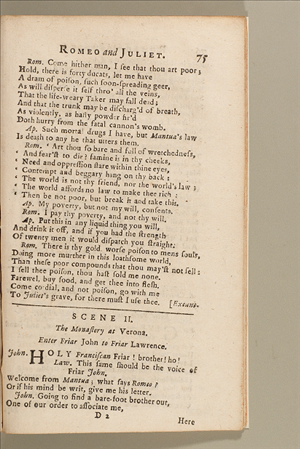 ROMEO and JULIET. 75
Rom. Come hither man, I see that thou art poor;
Hold, there is forty ducats, let me have
A dram of poison, such soon-spreading geer,
As will disperse it self thro' all the veins,
That the life-weary Taker may fall dead;
And that the trunk may be discharg'd of breath,
As violently, as hasty powder fir'd
Doth hurry from the fatal cannon's womb.
Ap. Such mortal drugs I have, but Mantua's law
Is death to any he that utters them.
Rom. ' Art thou so bare and full of wretchedness,
' And fear'st to die? famine is in thy cheeks,
' Need and oppression stare within thine eyes,
' Contempt and beggary hang on thy back:
' The world is not thy friend, nor the world's law;
' The world affords no law to make thee rich:
' Then be not poor, but break it and take this.
Ap. My poverty, but not my will, consents.
Rom. I pay thy poverty, and not thy will,
Ap. Put this in any liquid thing you will,
And drink it off, and if you had the strength
Of twenty men it would dispatch you straight.
Rom. There is thy gold, worse poison to mens souls,
Doing more murther in this loathsome world,
Than these poor compounds that thou may'st not sell:
I sell thee poison, thou hast sold me none.
Farewel, buy food, and get thee into flesh.
Come cordial, and not poison, go with me
To Juliet's grave, for there must I use thee. [Exeunt.
SCENE II.
The Monastery at Verona.
Enter Friar John to Friar Lawrence.
John. HOLY Franciscan Friar! brother! ho!
Law. This same should be the voice of
Friar John.
Welcome from Mantua; what says Romeo?
Or if his mind be writ, give me his letter.
John. Going to find a bare-foot brother out,
One of our order to associate me,
D 2 Here